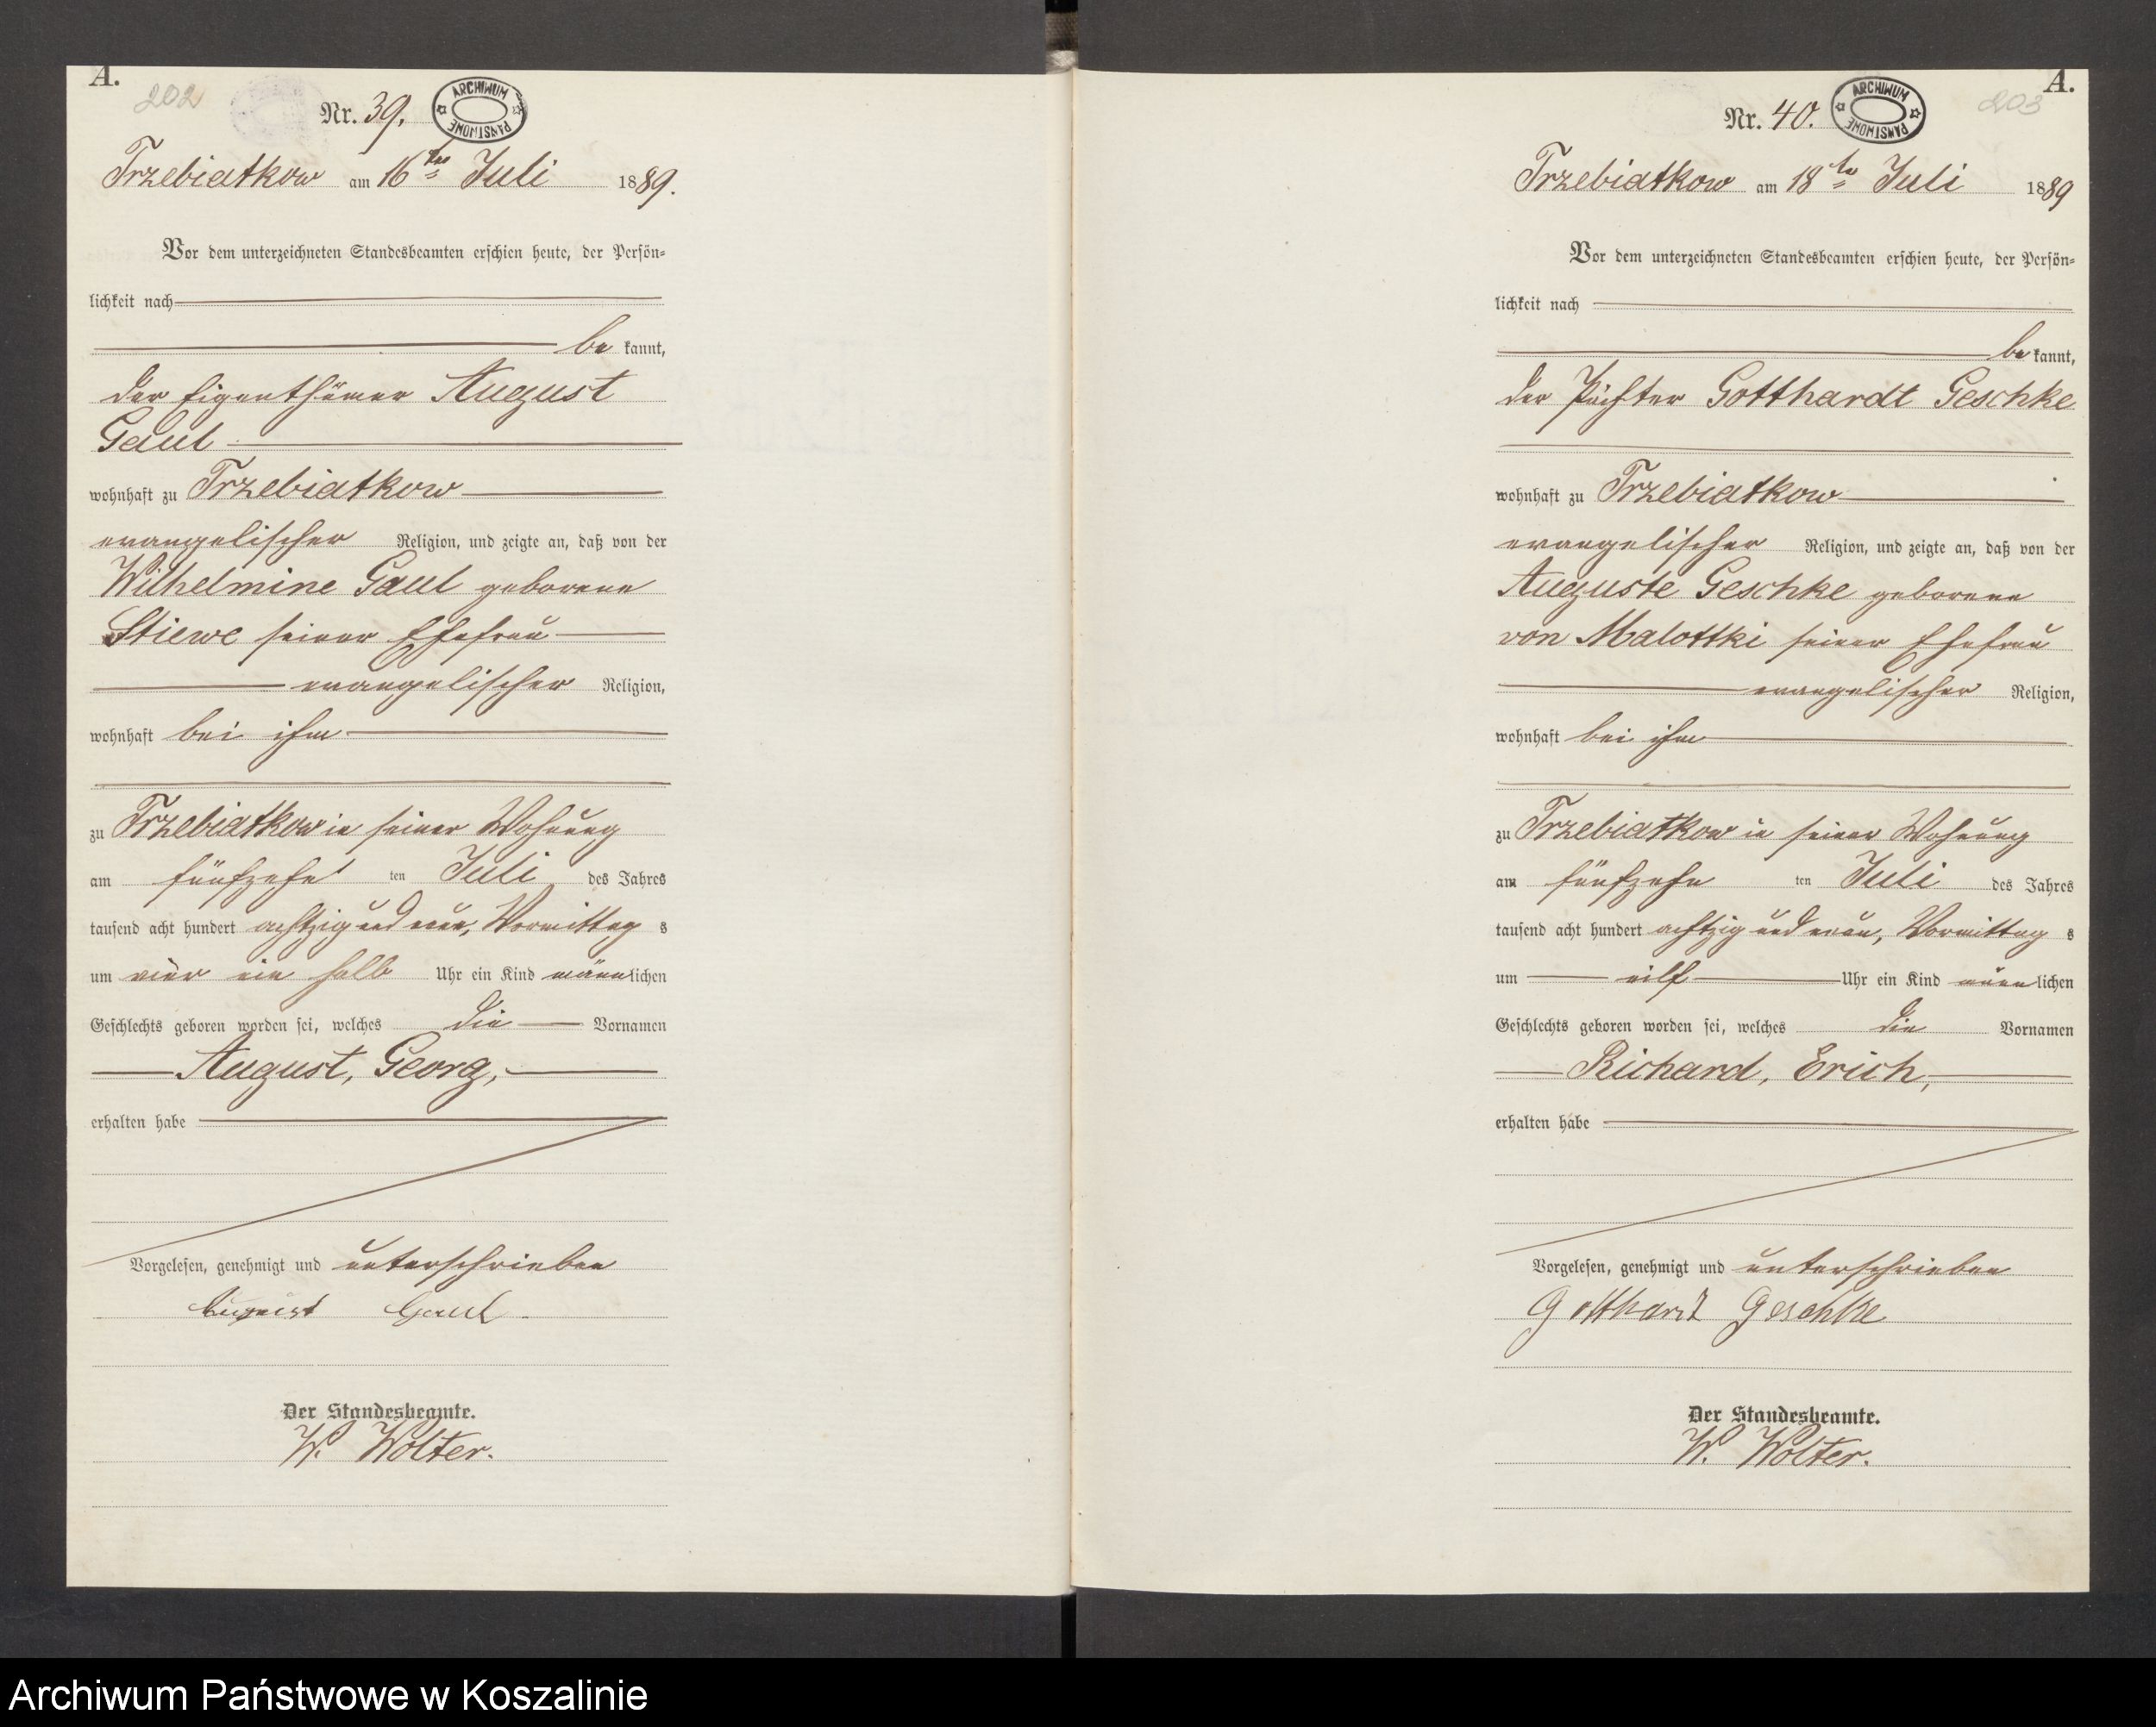 A.
202
Nr. 39.
ARCHIWUM PAŃSTWOWE
Trzebiatkow am 16ten Juli 1889.
Vor dem unterzeichneten Standesbeamten erschien heute, der Persön-
lichkeit nach
be kannt,
der Eigenthümer August
Gaul
wohnhaft zu Trzebiatkow
evangelischer Religion, und zeigte an, daß von der
Wilhelmine Gaul geborene
Stiewe seiner Ehefrau
evangelischer Religion,
wohnhaft bei ihm
zu Trzebiatkow in seiner Wohnung
am fünfzehn ten Juli des Jahres
tausend acht hundert achtzig und neun, Vormittag s
um vier ein halb Uhr ein Kind männlichen
Geschlechts geboren worden sei, welches die Vornamen
August, Georg,
erhalten habe
Vorgelesen, genehmigt und unterschrieben
August Gaul
Der Standesbeamte.
W. Wolter.
A.
203
Nr. 40.
ARCHIWUM PAŃSTWOWE
Trzebiatkow am 18ten Juli 1889
Vor dem unterzeichneten Standesbeamten erschien heute, der Persön-
lichkeit nach
be kannt,
der Pächter Gotthardt Geschke
wohnhaft zu Trzebiatkow
evangelischer Religion, und zeigte an, daß von der
Auguste Geschke geborene
von Malottki seiner Ehefrau
evangelischer Religion,
wohnhaft bei ihm
zu Trzebiatkow in seiner Wohnung
am fünfzehn ten Juli des Jahres
tausend acht hundert achtzig und neun, Vormittag s
um eilf Uhr ein Kind männlichen
Geschlechts geboren worden sei, welches die Vornamen
Richard, Erich,
erhalten habe
Vorgelesen, genehmigt und unterschrieben
Gotthard Geschke
Der Standesbeamte.
W. Wolter.
Archiwum Państwowe w Koszalinie